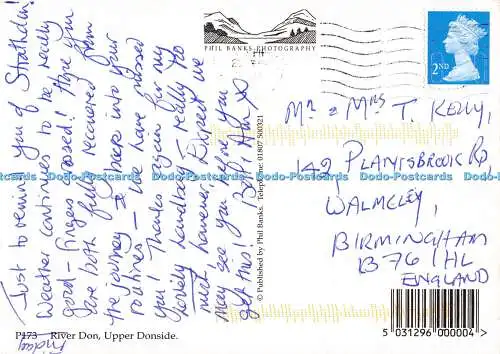 Just to remind you of Strathdon!
Weather continues to be really
good - fingers crossed! Hope you
are both fully recovered from
the journey & there into your
routines - we have missed
you! Thanks again for my
lovely handbag. I really do
much however. Expect we
may see you before you
get this!
Friday
PHIL BANKS PHOTOGRAPHY
2ND
© Published by Phil Banks. Telephone: 01807 500321
Mr & Mrs T. KELLY,
149 PLANTSBROOK RD
WALMLEY,
BIRMINGHAM
B76 1HL
ENGLAND
P173 River Don, Upper Donside.
5 031296 000004 >
Dodo-Postcards Dodo-Postcards Dodo-Postcards Dodo-Postcards Dodo-Postcards